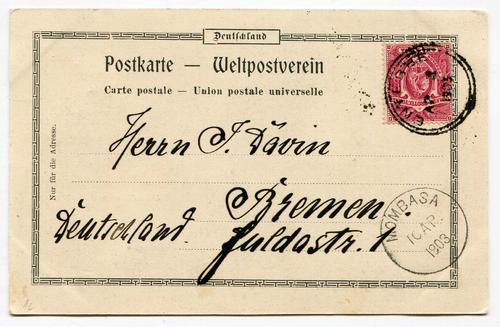 Deutschland
Postkarte — Weltpostverein
Carte postale — Union postale universelle
Nur für die Adresse.
Herrn J. Davin
Bremen.
Deutschland. Fuldastr. 1
ENTEBBE
AP 2
1903
MOMBASA
10 AP
1903